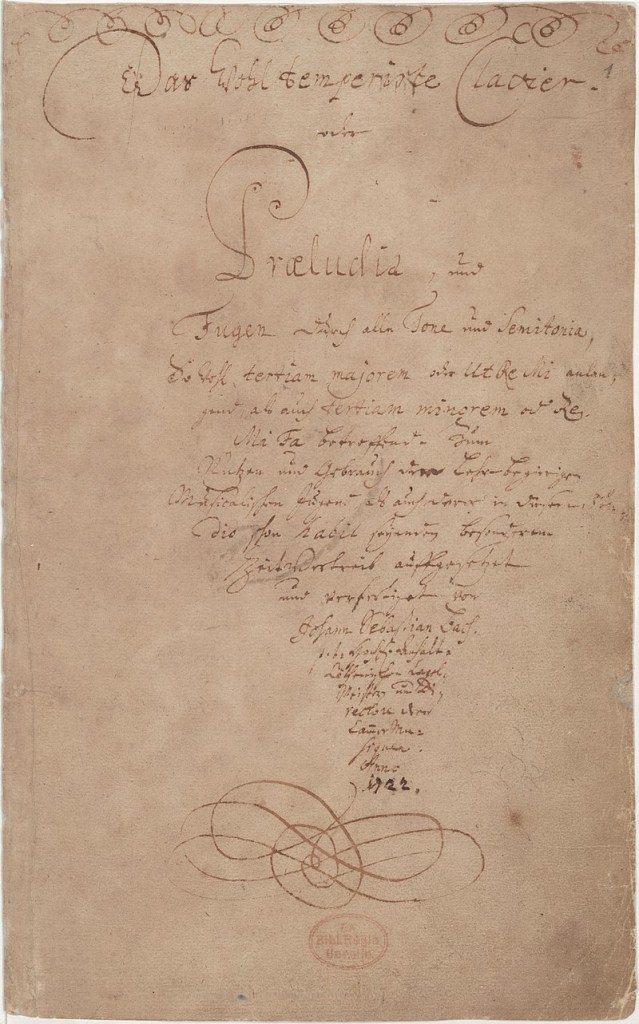 Das Wohltemperirte Clavier.
1
oder
Præludia, und
Fugen durch alle Tone und Semitonia,
So wohl tertiam majorem oder Ut Re Mi anlan-
gend, als auch tertiam minorem oder Re
Mi Fa betreffend. Zum
Nutzen und Gebrauch der Lehr-begierigen
Musicalischen Jugend, als auch derer in diesem stu-
dio schon habil seyenden besonderem
Zeit Vertreib auffgesetzet
und verfertiget von
Johann Sebastian Bach.
p. t. Hochf. Anhalt-
Cöthenischen Capel-
Meistern und Di-
rectore derer
Cammer Mu-
siquen.
Anno
1722.
Ex
Bibl. Regia
Berolin.